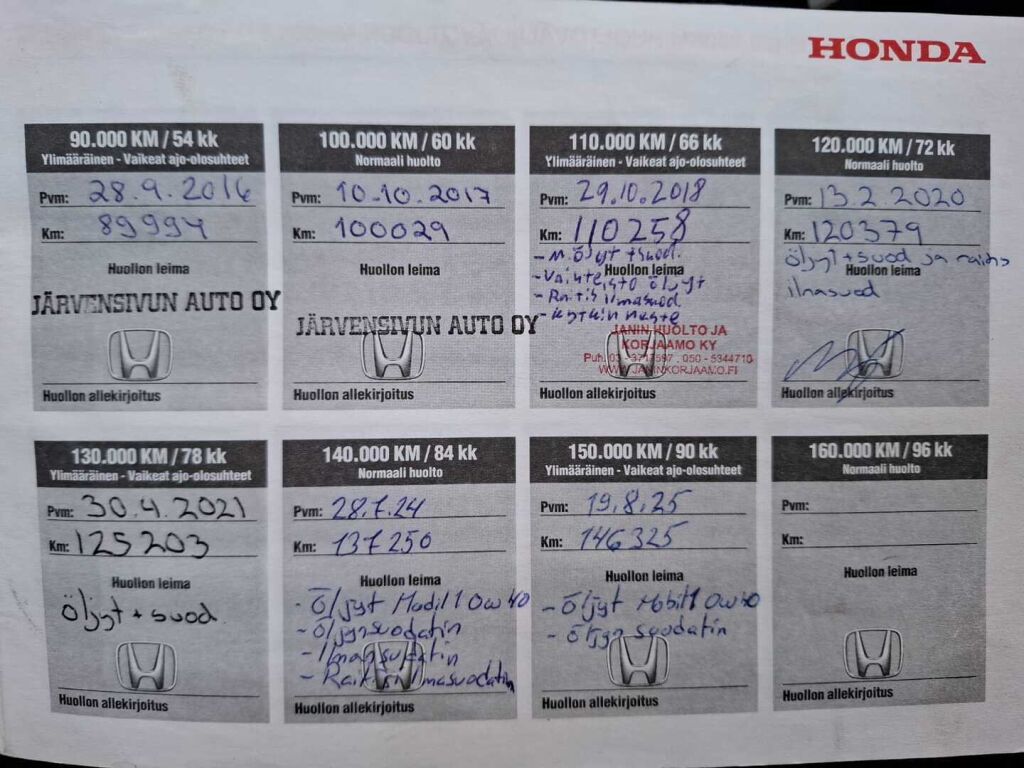 HONDA
90.000 KM / 54 kk
Ylimääräinen - Vaikeat ajo-olosuhteet
Pvm: 28.9.2016
Km: 89994
Huollon leima
JÄRVENSIVUN AUTO OY
Huollon allekirjoitus
100.000 KM / 60 kk
Normaali huolto
Pvm: 10.10.2017
Km: 100029
Huollon leima
JÄRVENSIVUN AUTO OY
Huollon allekirjoitus
110.000 KM / 66 kk
Ylimääräinen - Vaikeat ajo-olosuhteet
Pvm: 29.10.2018
Km: 110258
- M. Öljyt + suod.
Huollon leima
- Vaihteisto öljyt
- Raitis ilmasuod.
- kytkin neste
JANIN HUOLTO JA
KORJAAMO KY
Puh. 03 - 3717597, 050 - 5344710
WWW.JANINKORJAAMO.FI
Huollon allekirjoitus
120.000 KM / 72 kk
Normaali huolto
Pvm: 13.2.2020
Km: 120379
öljyt + suod ja raitis
Huollon leima
ilmasuod
Huollon allekirjoitus
130.000 KM / 78 kk
Ylimääräinen - Vaikeat ajo-olosuhteet
Pvm: 30.4.2021
Km: 125203
Huollon leima
Öljyt + suod.
Huollon allekirjoitus
140.000 KM / 84 kk
Normaali huolto
Pvm: 28.7.24
Km: 137250
Huollon leima
- Öljyt Mobil 1 0w40
- Öljynsuodatin
- Ilmansuodatin
- Raitisilmasuodatin
Huollon allekirjoitus
150.000 KM / 90 kk
Ylimääräinen - Vaikeat ajo-olosuhteet
Pvm: 19.8.25
Km: 146325
Huollon leima
- Öljyt Mobil 1 0w40
- Öljynsuodatin
Huollon allekirjoitus
160.000 KM / 96 kk
Normaali huolto
Pvm:
Km:
Huollon leima
Huollon allekirjoitus